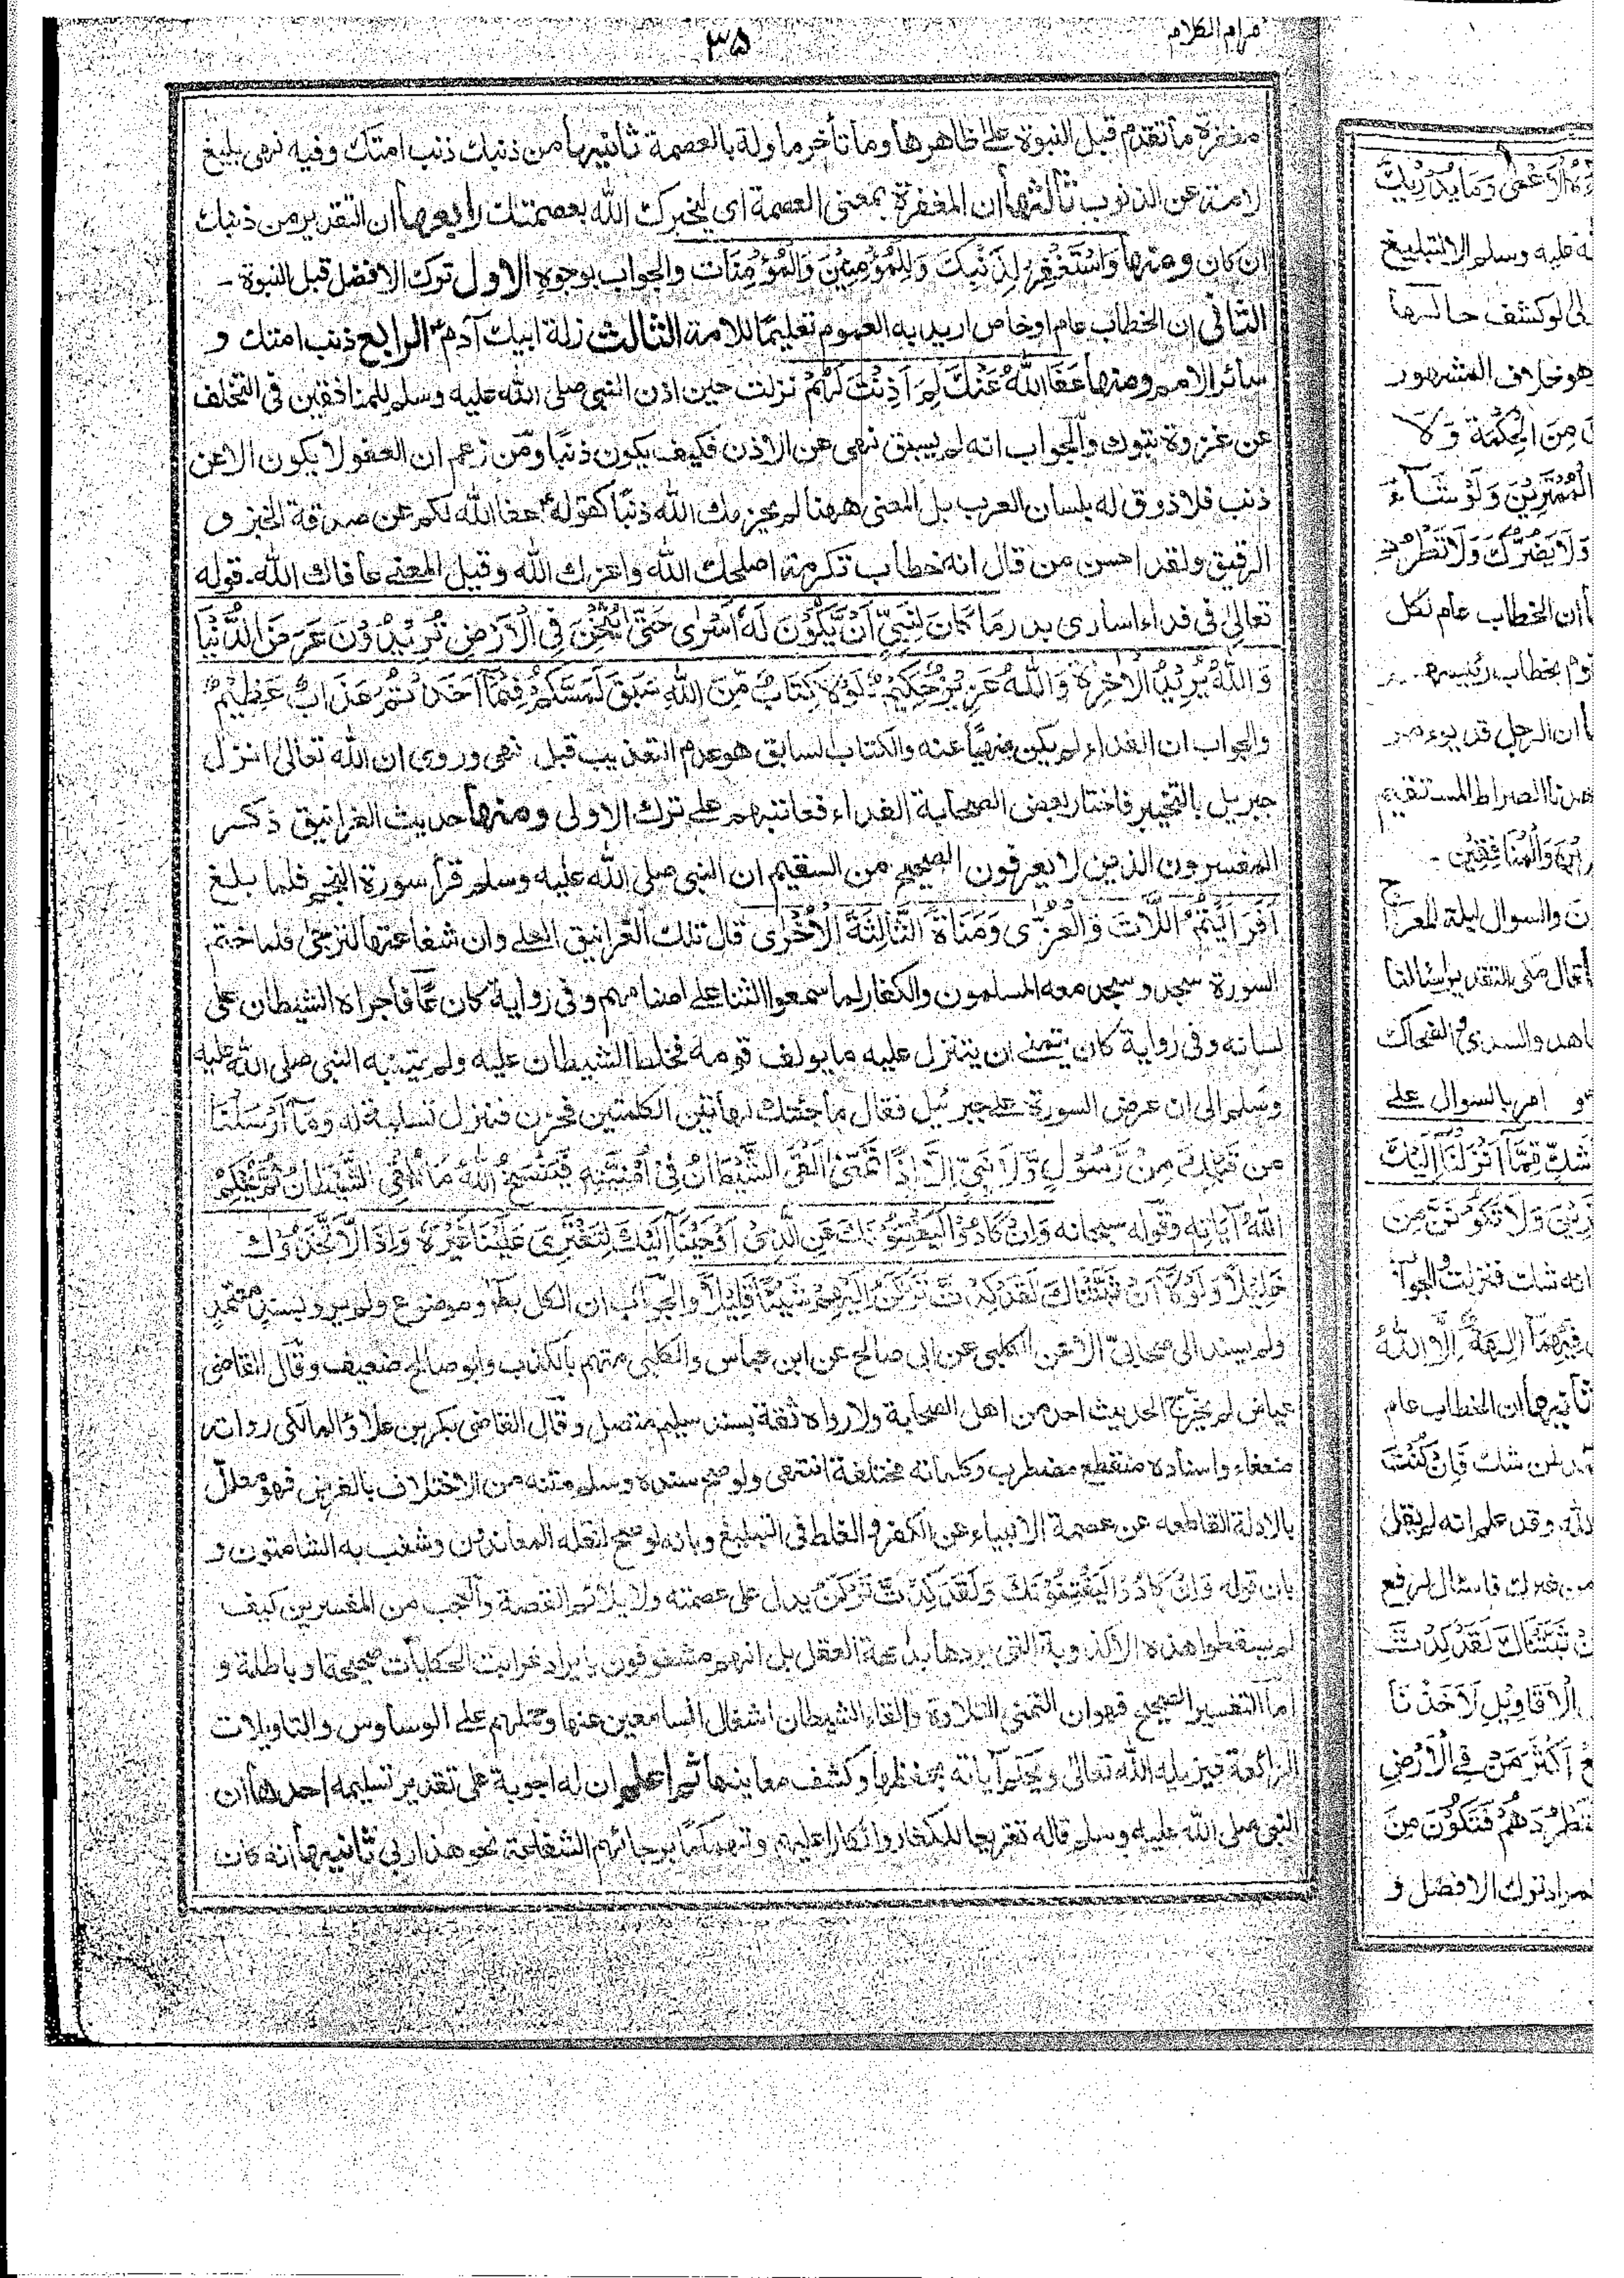 مرام الكلام
٣٥
مغفرة ما تقدم قبل النبوة على ظاهرها وما تأخر ماولة بالعصمة ثانيها من ذنبك ذنب امتك وفيه نهى بليغ
لامته عن الذنوب ثالثها أن المغفرة بمعنى العصمة اى ليخبرك الله بعصمتك رابعها ان التقدير من ذنبك
ان كان ومنها وَاسْتَغْفِرْ لِذَنْبِكَ وَلِلْمُؤْمِنِيْنَ وَالْمُؤْمِنَات والجواب بوجوه الاول ترك الافضل قبل النبوة -
الثانى ان الخطاب عام او خاص اريد به العموم تعليمًا للامة الثالث زلة ابيك آدم الرابع ذنب امتك و
سائر الامم ومنها عَفَا اللهُ عَنْكَ لِمَ اَذِنْتَ لَهُمْ نزلت حين اذن النبى صلى الله عليه وسلم للمنافقين فى التخلف
عن غزوة تبوك والجواب انه لم يسبق نهى عن الاذن فكيف يكون ذنبًا ومن زعم ان العفو لا يكون الا عن
ذنب فلا ذوق له بلسان العرب بل المعنى ههنا لم يلزمك الله ذنبًا كقوله عفا الله لكم عن صدقة الخيل و
الرقيق ولقد احسن من قال انه خطاب تكرمة اصلحك الله واعزك الله وقيل المعنى عافاك الله - قوله
تعالى فى فداء اسارى بدر مَا كَانَ لِنَبِيٍّ اَنْ يَّكُوْنَ لَهٗ اَسْرٰى حَتّٰى يُثْخِنَ فِى الْاَرْضِ تُرِيْدُوْنَ عَرَضَ الدُّنْيَا
وَاللهُ يُرِيْدُ الْاٰخِرَةَ وَاللهُ عَزِيْزٌ حَكِيْمٌ لَوْلَا كِتَابٌ مِّنَ اللهِ سَبَقَ لَمَسَّكُمْ فِيْمَا اَخَذْتُمْ عَذَابٌ عَظِيْمٌ
والجواب ان الفداء لم يكن منهيًا عنه والكتاب السابق هو عدم التعذيب قبل نهى وروى ان الله تعالى انزل
جبريل بالتخيير فاختار بعض الصحابة الفداء فعاتبهم على ترك الاولى ومنها حديث الغرانيق ذكر
المفسرون الذين لا يعرفون الصحيح من السقيم ان النبى صلى الله عليه وسلم قرأ سورة النجم فلما بلغ
اَفَرَاَيْتُمُ اللَّاتَ وَالْعُزّٰى وَمَنَاةَ الثَّالِثَةَ الْاُخْرٰى قال تلك الغرانيق العلى وان شفاعتها لترجى فلما ختم
السورة سجد وسجد معه المسلمون والكفار لما سمعوا الثناء على اصنامهم وفى رواية كان فاجراه الشيطان على
لسانه وفى رواية كان يتمنى ان يتنزل عليه ما يولف قومه فخلط الشيطان عليه ولم يتنبه النبى صلى الله عليه
وسلم الى ان عرض السورة على جبرئيل فقال ما جئتك بهاتين الكلمتين فحزن فنزل تسلية له وَمَا اَرْسَلْنَا
مِنْ قَبْلِكَ مِنْ رَّسُوْلٍ وَّلَا نَبِيٍّ اِلَّا اِذَا تَمَنّٰى اَلْقَى الشَّيْطَانُ فِىْ اُمْنِيَّتِهٖ فَيَنْسَخُ اللهُ مَا يُلْقِى الشَّيْطَانُ ثُمَّ يُحْكِمُ
اللهُ اٰيَاتِهٖ وقوله سبحانه وَاِنْ كَادُوْا لَيَفْتِنُوْنَكَ عَنِ الَّذِىْ اَوْحَيْنَا اِلَيْكَ لِتَفْتَرِىَ عَلَيْنَا غَيْرَهٗ وَاِذًا لَّاتَّخَذُوْكَ
خَلِيْلًا وَلَوْلَا اَنْ ثَبَّتْنَاكَ لَقَدْ كِدْتَ تَرْكَنُ اِلَيْهِمْ شَيْئًا قَلِيْلًا والجواب ان الكل باطل وموضوع ولم يرو بسند معتمد
ولم يسند الى صحابى الا عن الكلبى عن ابى صالح عن ابن عباس والكلبى متهم بالكذب وابو صالح ضعيف وقال القاضى
عياض لم يخرج الحديث احد من اهل الصحابة ولا رواه ثقة بسند سليم متصل وقال القاضى بكر بن علاؤ المالكى رواته
ضعفاء واسناده منقطع مضطرب وكلماته مختلفة انتهى ولو صح سنده وسلم متنه من الاختلاف بالفرض فهو معلل
بالادلة القاطعه عن عصمة الانبياء عن الكفر والغلط فى التبليغ وبانه لو صح لنقله المعاندون وشغب به الشامتون و
بان قوله وَاِنْ كَادُوْا لَيَفْتِنُوْنَكَ وَلَقَدْ كِدْتَّ تَرْكَنُ يدل على عصمته ولا يلائم القصة والعجب من المفسرين كيف
لم يسقطوا هذه الاكذوبة التى يردها بداهة العقل بل انهم مشغوفون بايراد غرائب الحكايات صحيحة او باطلة و
اما التفسير الصحيح فهو ان التمنى التلاوة والقاء الشيطان اشغال السامعين عنها وحملهم على الوساوس والتاويلات
الزائغة فيزيله الله تعالى ويحكم آياته بحفظها وكشف معاينها ثم اعلم ان له اجوبة على تقدير تسليمه احدها أن
النبى صلى الله عليه وسلم قاله تقريعا للكفار وانكارا عليهم وتهكمًا برجائهم الشفاعة نحو هذا ربى ثانيها أنه كان
الْاَعْمٰى وَمَا يُدْرِيْكَ
عليه وسلم الا التبليغ
لو كشف حالها
هو خلاف المشهور
مِنَ الْحِكْمَةِ وَلَا
الْمُمْتَرِيْنَ وَلَوْ شَآءَ
وَلَا يَضُرُّكَ وَلَا تَطْرُدِ
أن الخطاب عام لكل
بخطاب رئيسهم
ان الرجل قد يومر
اهدنا الصراط المستقيم
وَالْمُنَافِقِيْنَ -
والسوال ليلة المعراج
والسدى والضحاك
امر بالسوال على
شَكٍّ مِّمَّا اَنْزَلْنَا اِلَيْكَ
وَلَا تَكُوْنَنَّ مِنَ
شك فنزلت
فِيْهِمَا اٰلِهَةٌ اِلَّا اللهُ
ثانيها أن الخطاب عام
لمن شك فَاِنْ كُنْتَ
وقد علم انه لم يقل
ثَبَّتْنَاكَ لَقَدْ كِدْتَّ
الْاَقَاوِيْلِ لَاَخَذْنَا
اَكْثَرَ مَنْ فِى الْاَرْضِ
فَتَطْرُدَهُمْ فَتَكُوْنَ مِنَ
ترك الافضل و